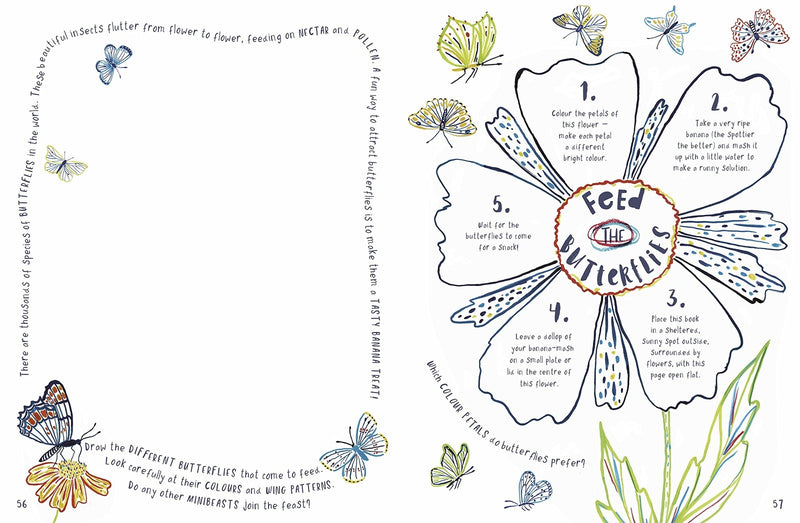 There are thousands of species of BUTTERFLIES in the world. These beautiful insects flutter from flower to flower, feeding on NECTAR and POLLEN. A fun way to attract butterflies is to make them a TASTY BANANA TREAT!
Draw the DIFFERENT BUTTERFLIES that come to feed.
Look carefully at their COLOURS and WING PATTERNS.
Do any other MINIBEASTS join the feast?
56
FEED
THE
BUTTERFLIES
1.
Colour the petals of
this flower –
make each petal
a different
bright colour.
2.
Take a very ripe
banana (the spottier
the better) and mash it
up with a little water to
make a runny solution.
3.
Place this book
in a sheltered,
sunny spot outside,
surrounded by
flowers, with this
page open flat.
4.
Leave a dollop of
your banana-mash
on a small plate or
lid in the centre of
this flower.
5.
Wait for the
butterflies to come
for a snack!
Which COLOUR PETALS do butterflies prefer?
57